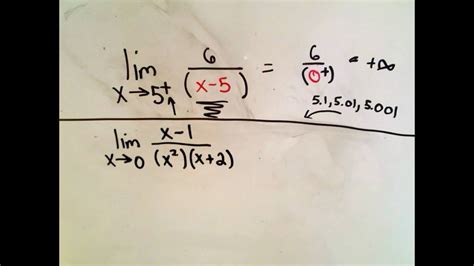 lim x→5⁺ 6/(x-5) = 6/(0⁺) = +∞
5.1, 5.01, 5.001
lim x→0 x-1/(x²)(x+2)